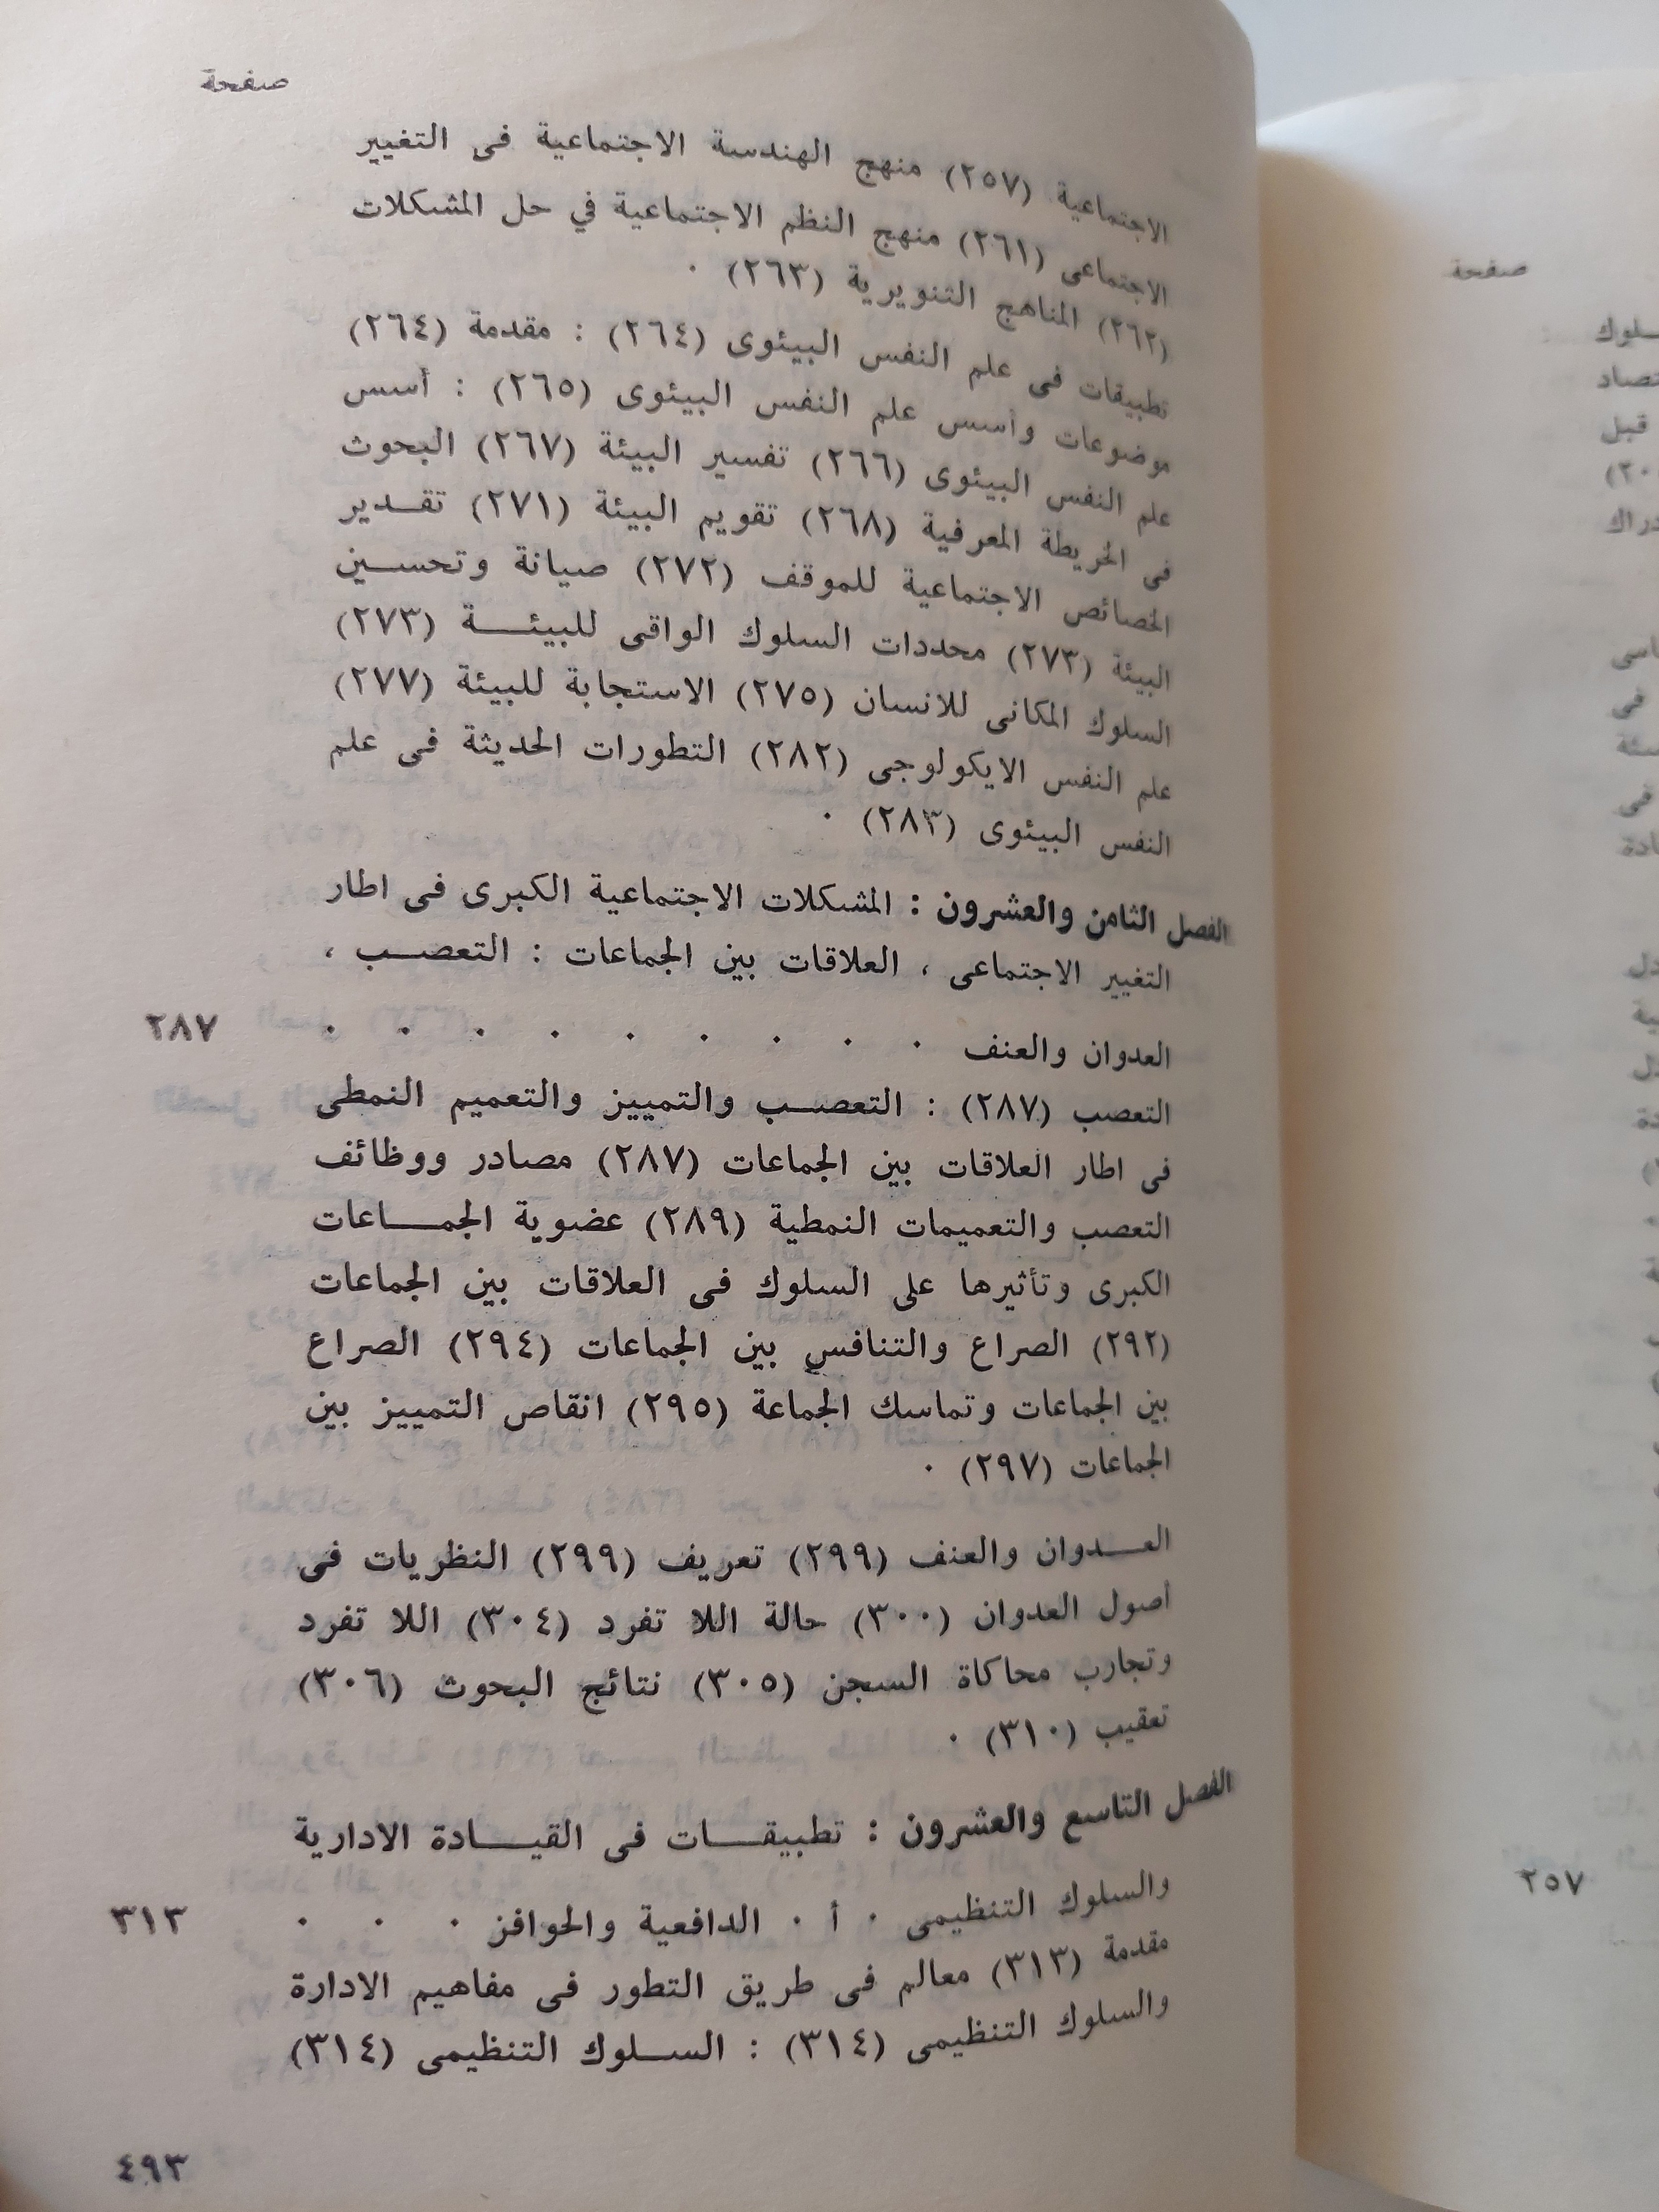 صفحة
الاجتماعية (٢٥٧) منهج الهندسة الاجتماعية فى التغيير
الاجتماعى (٢٦١) منهج النظم الاجتماعية في حل المشكلات
(٢٦٢) المناهج التنويرية (٢٦٣) ·
تطبيقات فى علم النفس البيئوى (٢٦٤) : مقدمة (٢٦٤)
موضوعات وأسس علم النفس البيئوى (٢٦٥) : أسس
علم النفس البيئوى (٢٦٦) تفسير البيئة (٢٦٧) البحوث
فى الخريطة المعرفية (٢٦٨) تقويم البيئة (٢٧١) تقــدير
الخصائص الاجتماعية للموقف (٢٧٢) صيانة وتحســين
البيئة (٢٧٣) محددات السلوك الواقى للبيئــــة (٢٧٣)
السلوك المكانى للانسان (٢٧٥) الاستجابة للبيئة (٢٧٧)
علم النفس الايكولوجى (٢٨٢) التطورات الحديثة فى علم
النفس البيئوى (٢٨٣) ·
الفصل الثامن والعشرون : المشكلات الاجتماعية الكبرى فى اطار
التغيير الاجتماعى ، العلاقات بين الجماعات : التعصــب ،
العدوان والعنف · · · · · · · · · ٢٨٧
التعصب (٢٨٧) : التعصــب والتمييز والتعميم النمطى
فى اطار العلاقات بين الجماعات (٢٨٧) مصادر ووظائف
التعصب والتعميمات النمطية (٢٨٩) عضوية الجمــــاعات
الكبرى وتأثيرها على السلوك فى العلاقات بين الجماعات
(٢٩٢) الصراع والتنافس بين الجماعات (٢٩٤) الصراع
بين الجماعات وتماسك الجماعة (٢٩٥) انقاص التمييز بين
الجماعات (٢٩٧) ·
العــدوان والعنف (٢٩٩) تعريف (٢٩٩) النظريات فى
أصول العدوان (٣٠٠) حالة اللا تفرد (٣٠٤) اللا تفرد
وتجارب محاكاة السجن (٣٠٥) نتائج البحوث (٣٠٦)
تعقيب (٣١٠) ·
الفصل التاسع والعشرون : تطبيقــــات فى القيــــادة الادارية
والسلوك التنظيمى · أ · الدافعية والحوافز · · · ٣١٣
مقدمة (٣١٣) معالم فى طريق التطور فى مفاهيم الادارة
والسلوك التنظيمى (٣١٤) : الســلوك التنظيمى (٣١٤)
٤٩٣
صفحة
قبل
فى
فى
٢٥٧